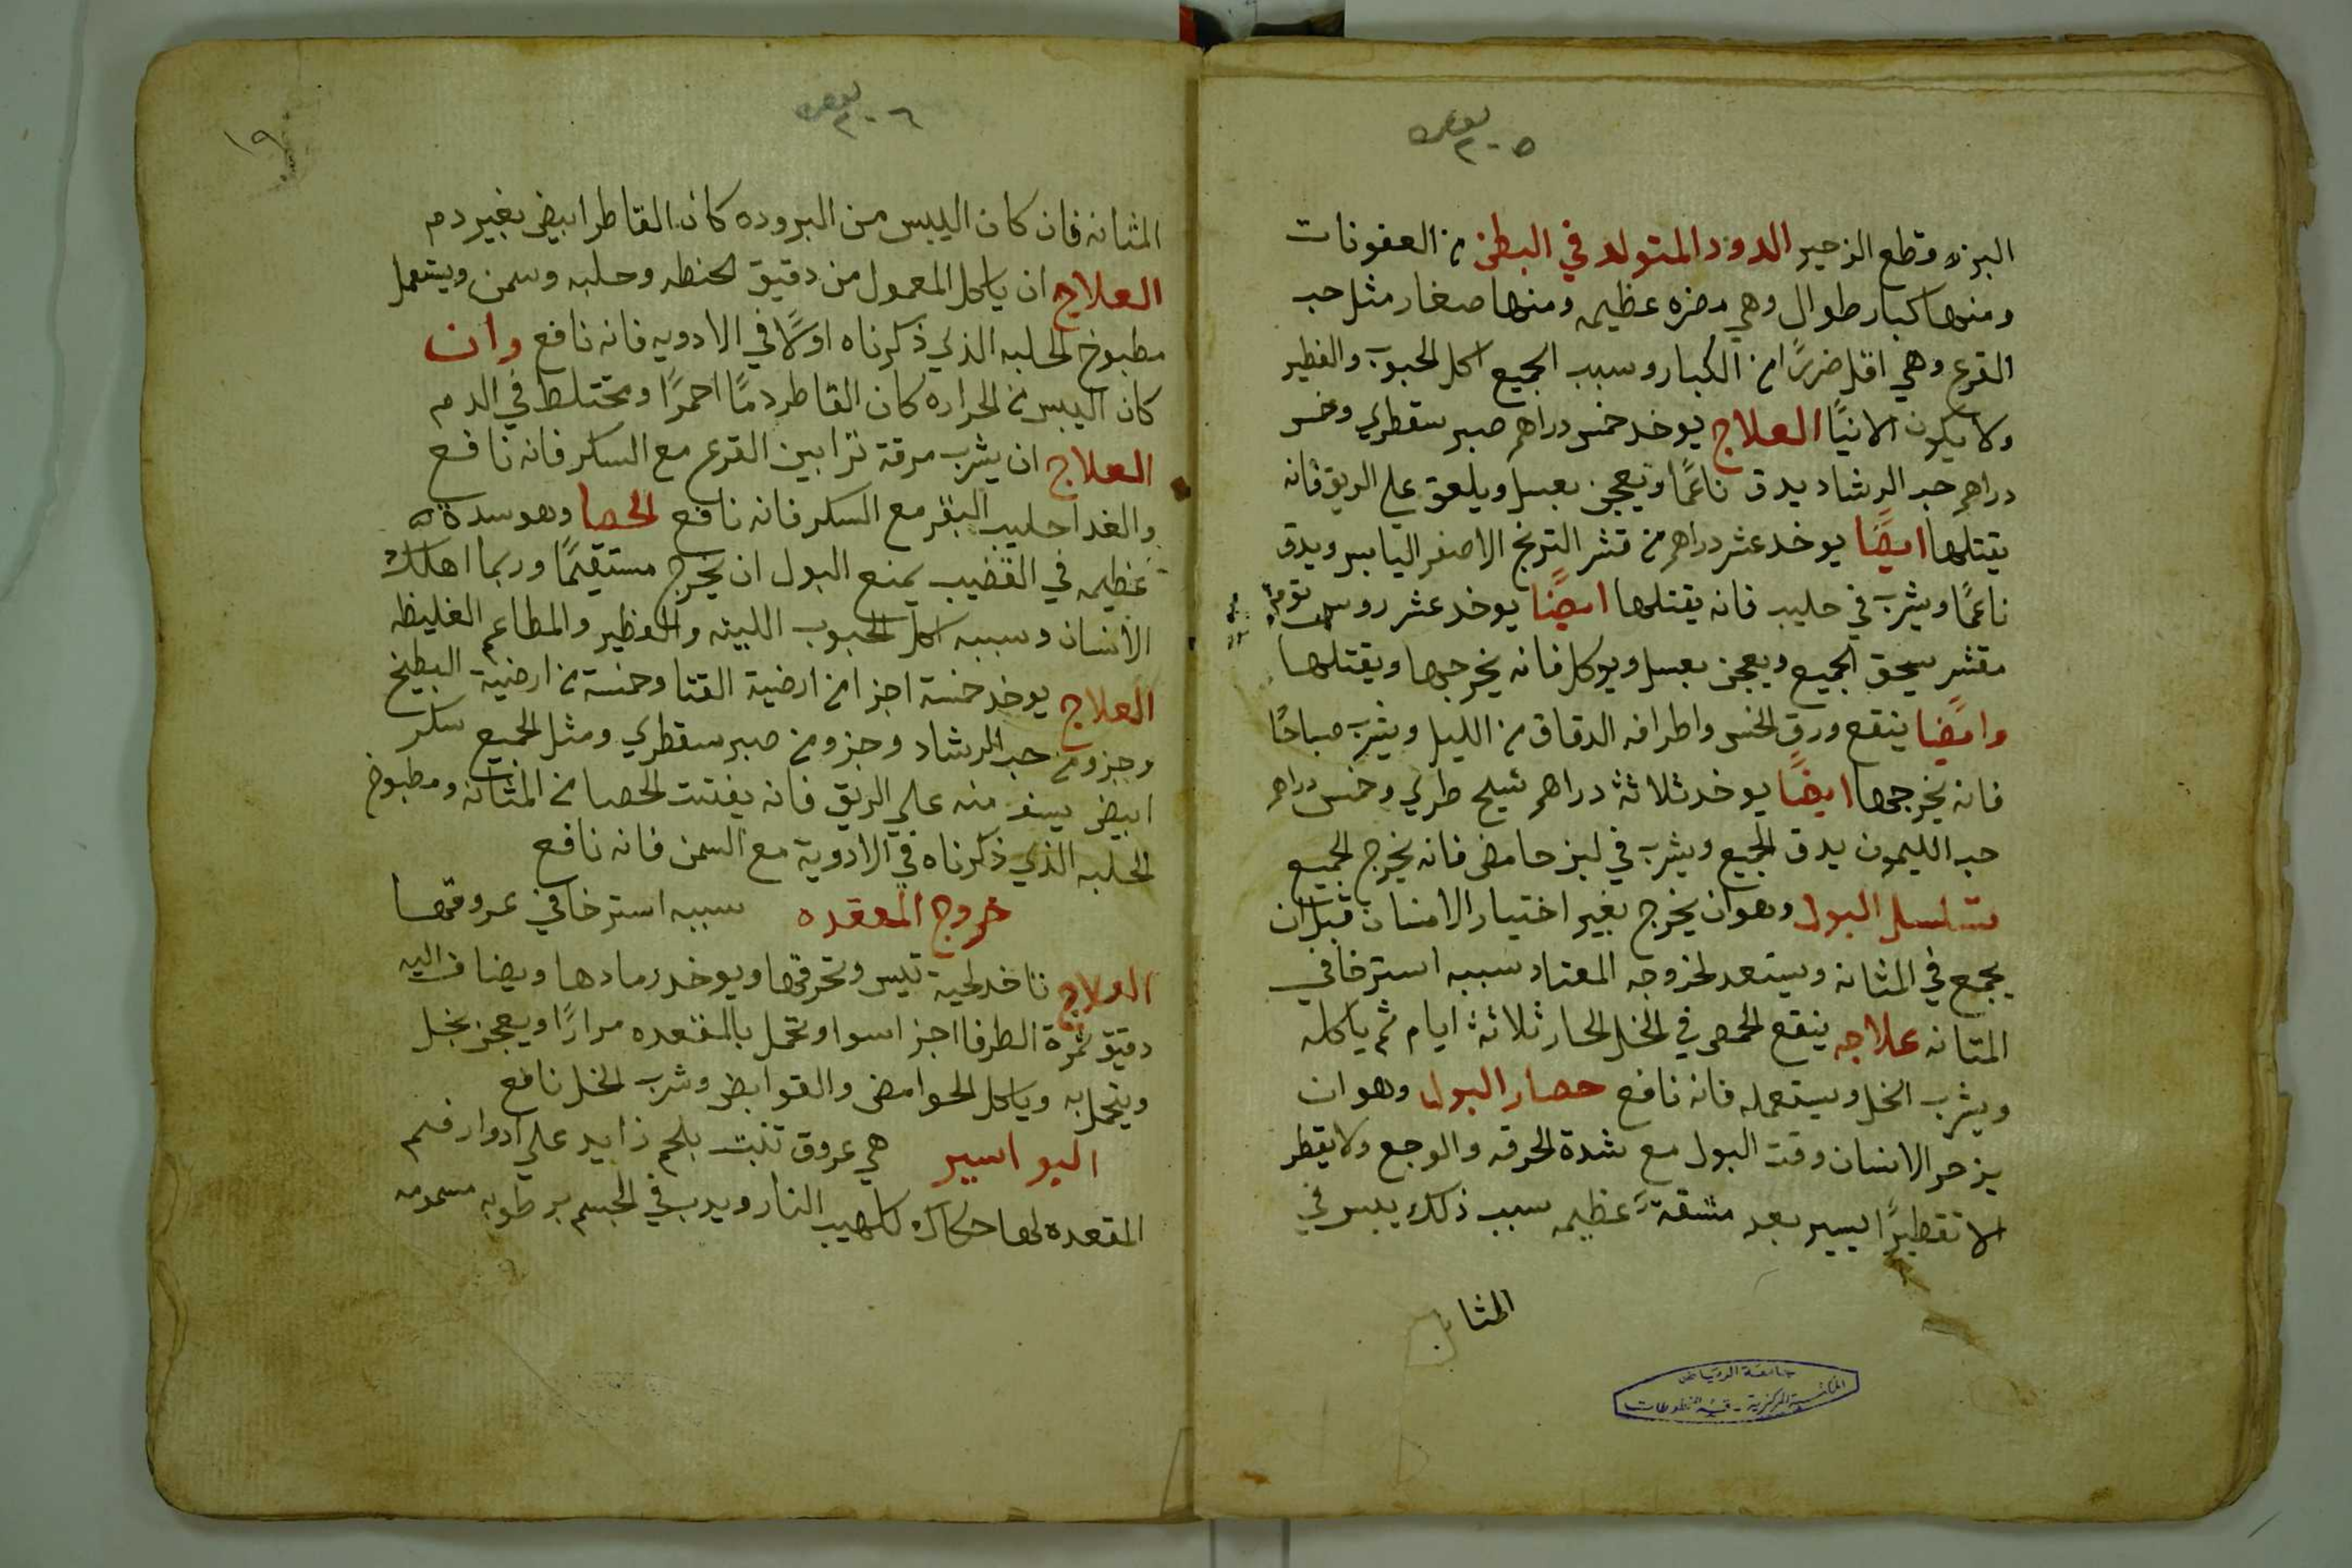 البزر وقطع الزحير الدود المتولد في البطن من العفونات
ومنها كبار طوال وهي مضره عظيمه ومنها صغار مثل حب
القرع وهي اقل ضررًا من الكبار وسبب الجميع اكل الحبوب والفطير
ولا يكون الا نيًا العلاج يوخد خمس دراهم صبر سقطري وخمس
دراهم حب الرشاد يدق ناعمًا ويعجن بعسل ويلعق علي الريق فانه
يقتلها ايضًا يوخد عشر دراهم من قشر الترنج الاصفر اليابس ويدق
ناعمًا ويشرب في حليب فانه يقتلها ايضًا يوخد عشر روس ثوم
مقشر يسحق الجميع ويعجن بعسل ويوكل فانه يخرجها ويقتلها
وايضًا ينقع ورق الخس واطرافه الدقاق من الليل ويشرب صباحًا
فانه يخرجها ايضًا يوخد ثلاثة دراهم شيلح طري وخمس دراهم
حب الليمون يدق الجميع ويشرب في لبن حامض فانه يخرج الجميع
تسلسل البول وهو ان يخرج بغير اختيار الانسان قبل ان
يجمع في المثانه ويستعد لخروجه المعتاد سببه استرخا في
المتانه علاجه ينقع الحمص في الخل الحار ثلاثة ايام ثم ياكله
ويشرب الخل ويستعمله فانه نافع حصار البول وهو ان
يزحر الانسان وقت البول مع شدة الحرقه والوجع ولا يقطر
الا تقطيرًا يسير بعد مشقة عظيمه سبب ذلك يبس في
المثانه
جامعة الرياض
المكتبة المركزية - قسم المخطوطات
١٩
المثانه فان كان اليبس من البروده كان القاطر ابيض بغير دم
العلاج ان ياكل المعمول من دقيق الحنطه وحلبه وسمن ويستعمل
مطبوخ الحلبه الذي ذكرناه اولًا في الادويه فانه نافع وان
كان اليبس من الحراره كان القاطر دمًا احمرًا ومختلط في الدم
العلاج ان يشرب مرقة ترابين القرع مع السكر فانه نافع
والغدا حليب البقر مع السكر فانه نافع الحصا وهو سدة
عظيمه في القضيب يمنع البول ان يخرج مستقيمًا وربما اهلك
الانسان وسببه اكل الحبوب اللينه والفطير والمطاعم الغليظه
العلاج يوخد خمسة اجزا من ارضية القثا وخمسة من ارضية البطيخ
وجزو من حب الرشاد وجزو من صبر سقطري ومثل الجميع سكر
ابيض يسف منه علي الريق فانه يفتت الحصا من المثانه ومطبوخ
الحلبه الذي ذكرناه في الادوية مع السمن فانه نافع
خروج المقعده سببه استرخا في عروقها
العلاج تاخد لحية تيس وتحرقها ويوخد رمادها ويضاف اليه
دقيق ثمرة الطرفا اجزا سوا وتحمل بالمقعده مرارًا ويعجن بخل
ويتحمل به وياكل الحوامض والقوابض وشرب الخل نافع
البواسير هي عروق تنبت بلحم زايد علي ادوار فم
المقعده لها حكاك كلهيب النار ويدب في الجسم برطوبه مسمومه